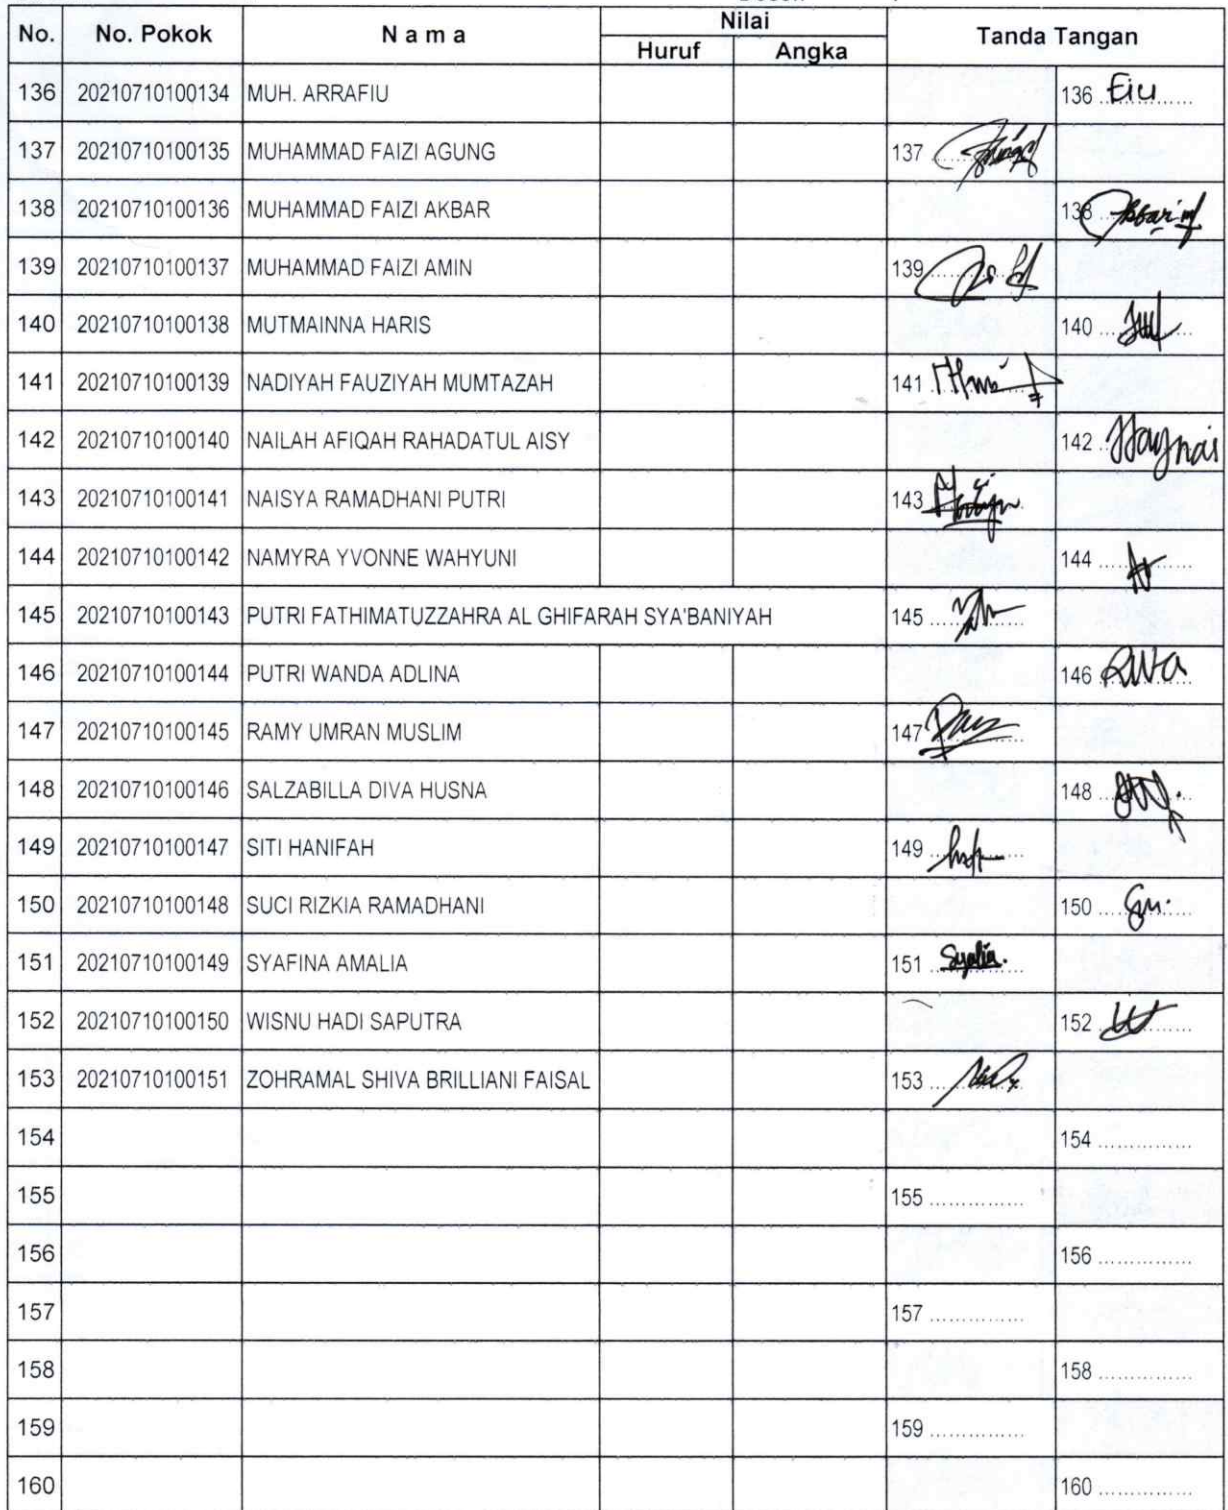 Nilai
No. No. Pokok N a m a Tanda Tangan
Huruf Angka
136 20210710100134 MUH. ARRAFIU 136 Eiu
137 20210710100135 MUHAMMAD FAIZI AGUNG 137
138 20210710100136 MUHAMMAD FAIZI AKBAR 138
139 20210710100137 MUHAMMAD FAIZI AMIN 139
140 20210710100138 MUTMAINNA HARIS 140
141 20210710100139 NADIYAH FAUZIYAH MUMTAZAH 141
142 20210710100140 NAILAH AFIQAH RAHADATUL AISY 142
143 20210710100141 NAISYA RAMADHANI PUTRI 143
144 20210710100142 NAMYRA YVONNE WAHYUNI 144
145 20210710100143 PUTRI FATHIMATUZZAHRA AL GHIFARAH SYA'BANIYAH 145
146 20210710100144 PUTRI WANDA ADLINA 146
147 20210710100145 RAMY UMRAN MUSLIM 147
148 20210710100146 SALZABILLA DIVA HUSNA 148
149 20210710100147 SITI HANIFAH 149
150 20210710100148 SUCI RIZKIA RAMADHANI 150
151 20210710100149 SYAFINA AMALIA 151 Syalia.
152 20210710100150 WISNU HADI SAPUTRA 152
153 20210710100151 ZOHRAMAL SHIVA BRILLIANI FAISAL 153
154 154 ...............
155 155 ...............
156 156 ...............
157 157 ...............
158 158 ...............
159 159 ...............
160 160 ...............